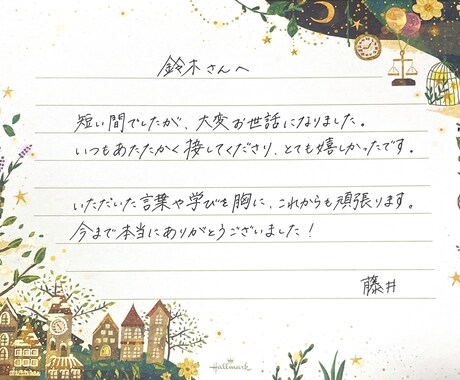 鈴木さんへ
短い間でしたが、大変お世話になりました。
いつもあたたかく接してくださり、とても嬉しかったです。
いただいた言葉や学びを胸に、これからも頑張ります。
今まで本当にありがとうございました!
藤井
Hallmark